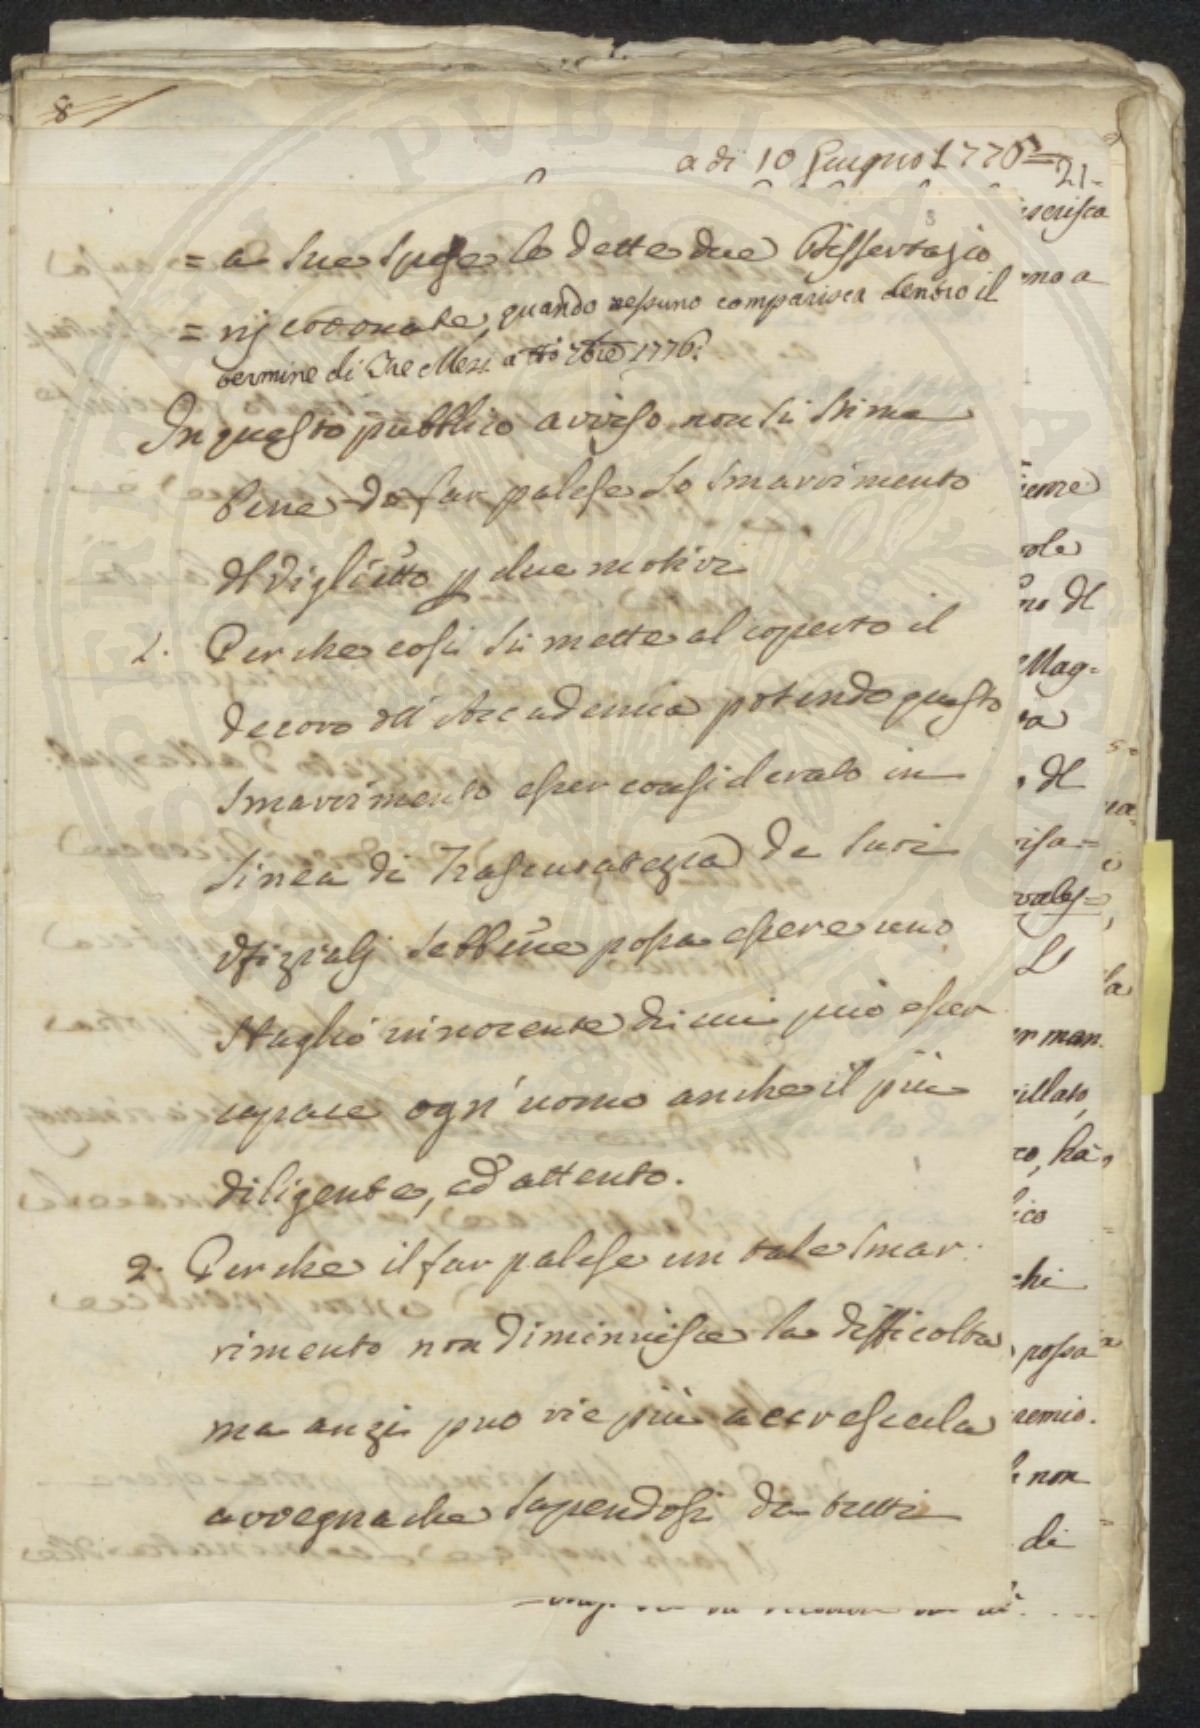 8
a dì 10 Giugno 1776 =
21 -
= a sue spese le dette due Dissertazio
= nij coronate, quando nessuno comparisca dentro il
termine di tre Mesi
1776
In questo pubblico avviso non si stima
bene di far palese lo smarrimento
dl Vigliétto p due motivi
1. Perche così si mette al coperto il
decoro dll' Accademia potendo questo
smarrimento esser considerato in
linea di Trascuratezza de suoi
Ufizialj sebbene possa essere uno
sbaglio innocente di cui può esser
capace ogn' uomo anche il più
diligente, ed attento.
2. Perche il far palese un tale smar
rimento non diminuisce la difficolta
ma anzi puo vie più accrescerla
avvegnache sapendosi da tutti
ascrisca
eno a
ieme
vole
no dl
Mag=
dl
er man
illato,
co, ha
ico
chi
possa
remio.
non
di